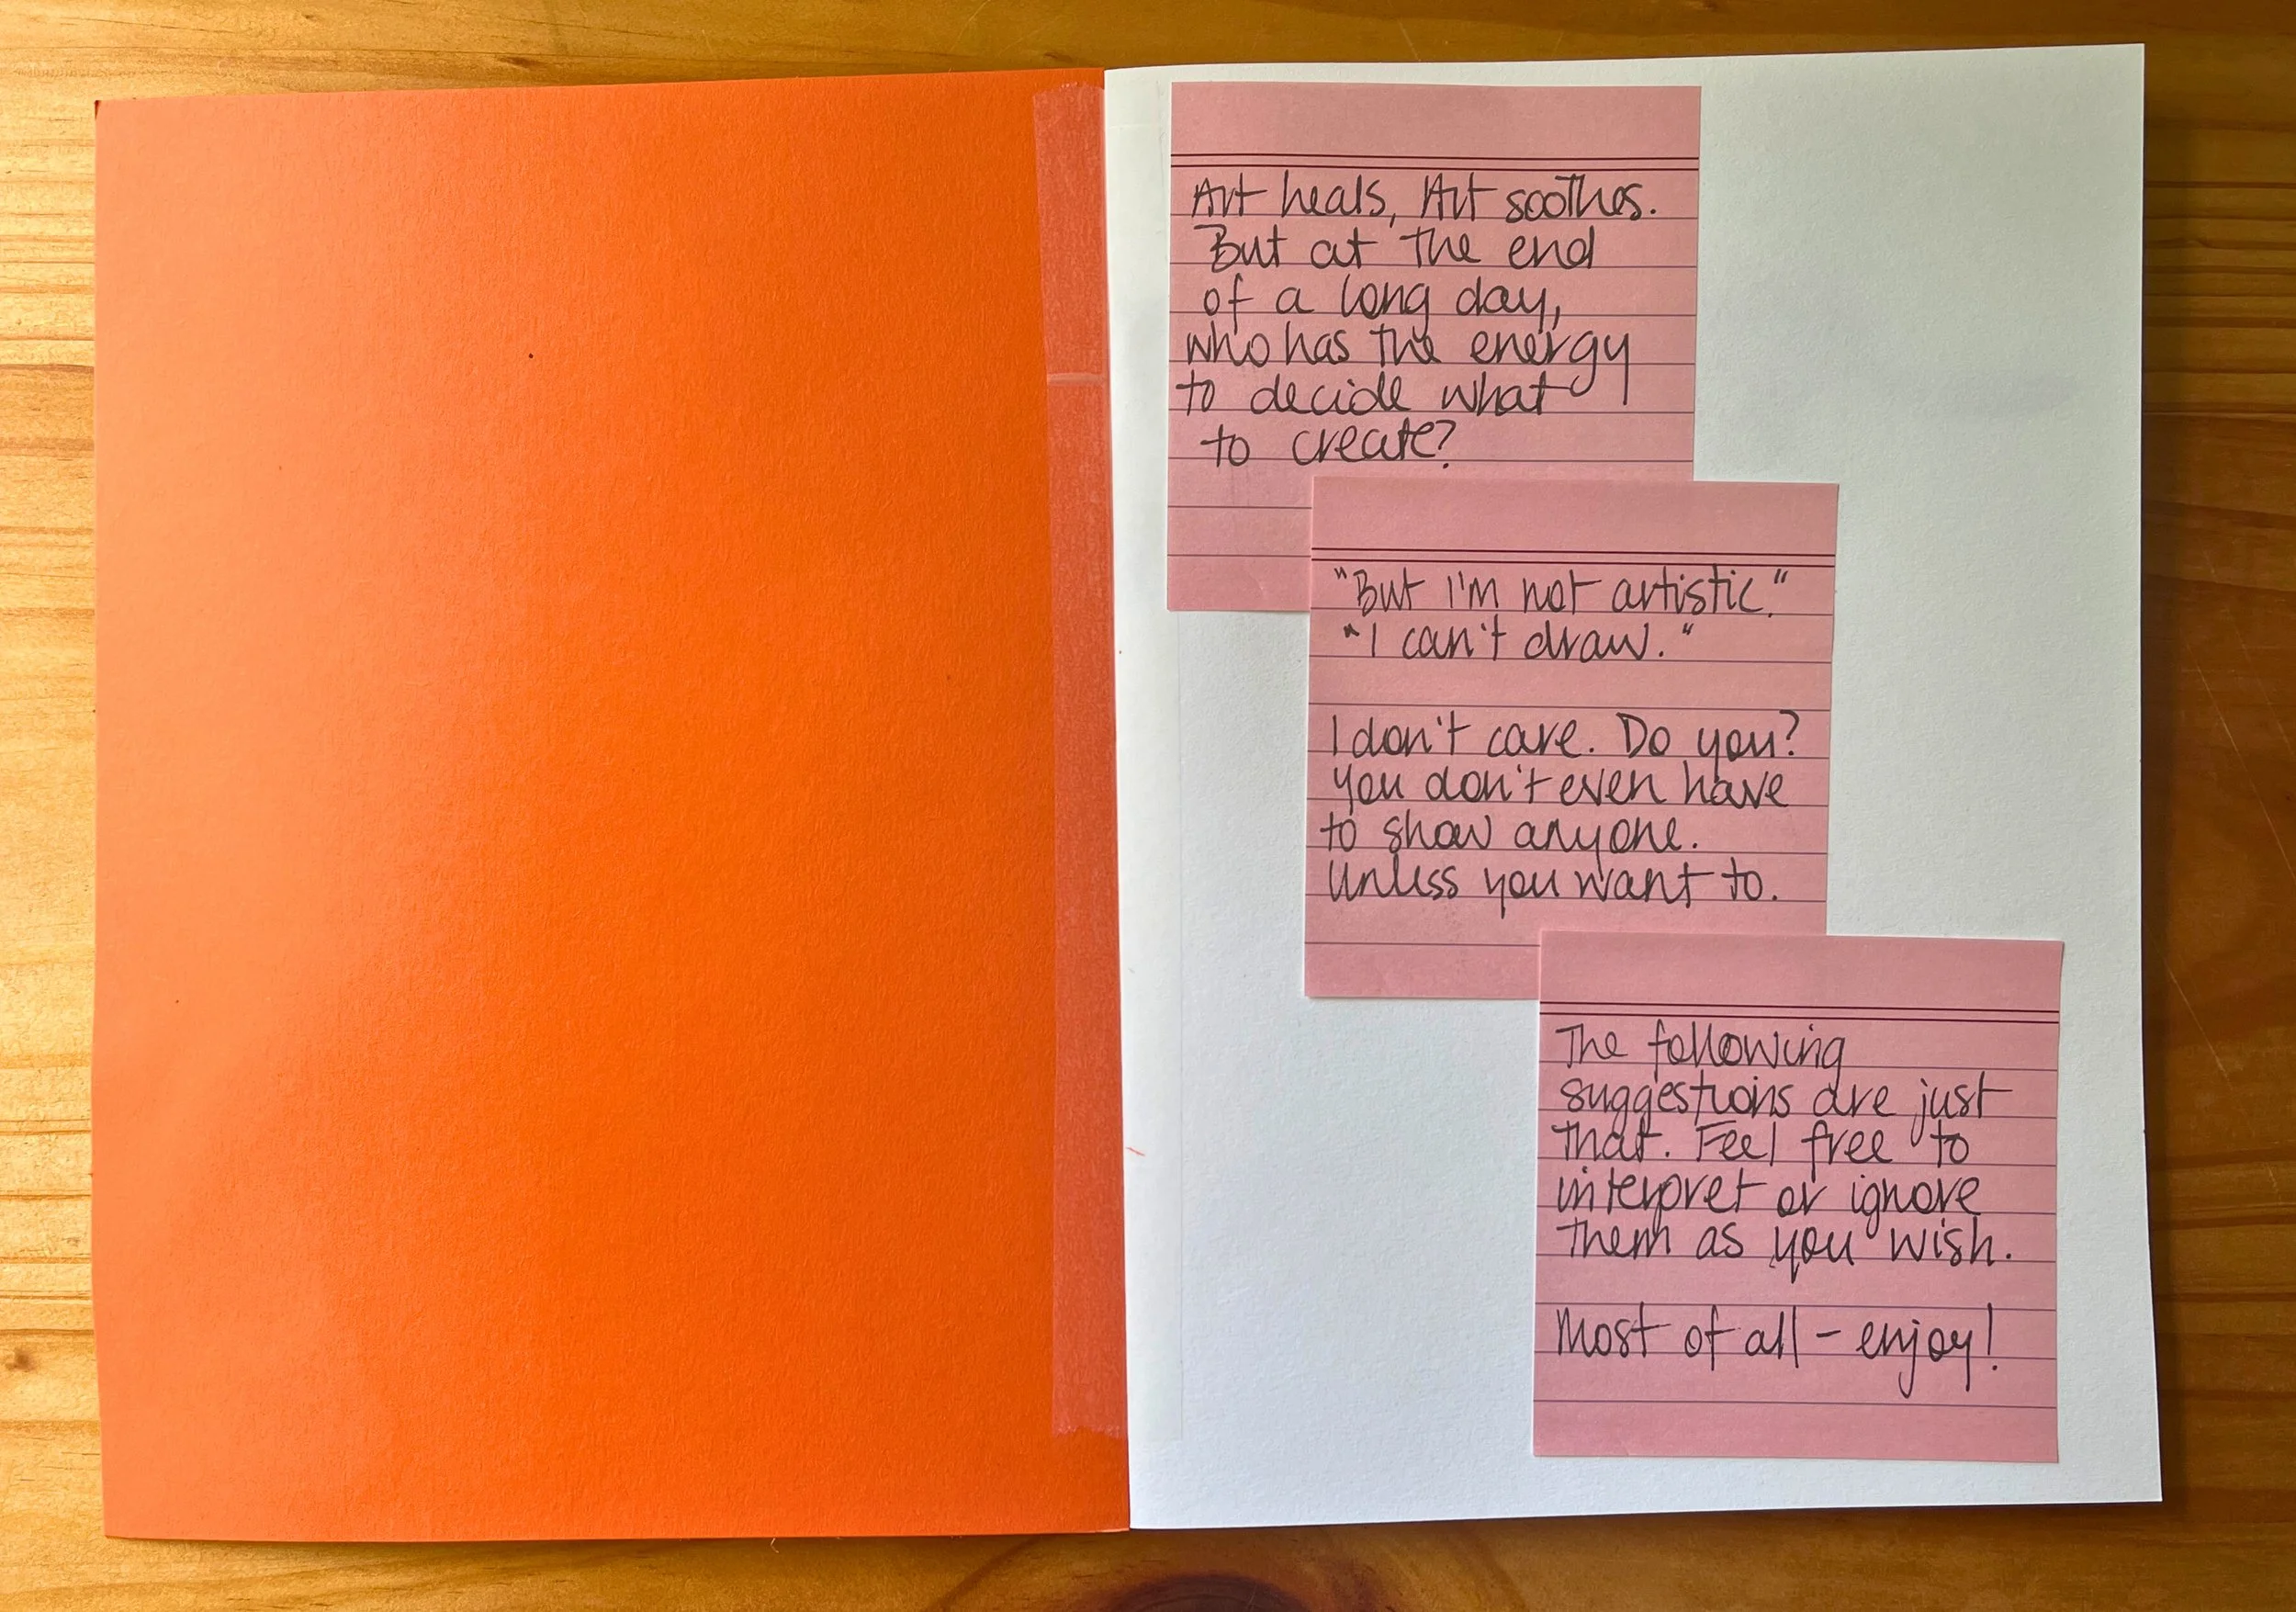 Art heals, Art soothes.
But at the end
of a long day,
who has the energy
to decide what
to create?
"But I'm not artistic."
"I can't draw."
I don't care. Do you?
You don't even have
to show anyone.
Unless you want to.
The following
suggestions are just
that. Feel free to
interpret or ignore
them as you wish.
Most of all – enjoy!